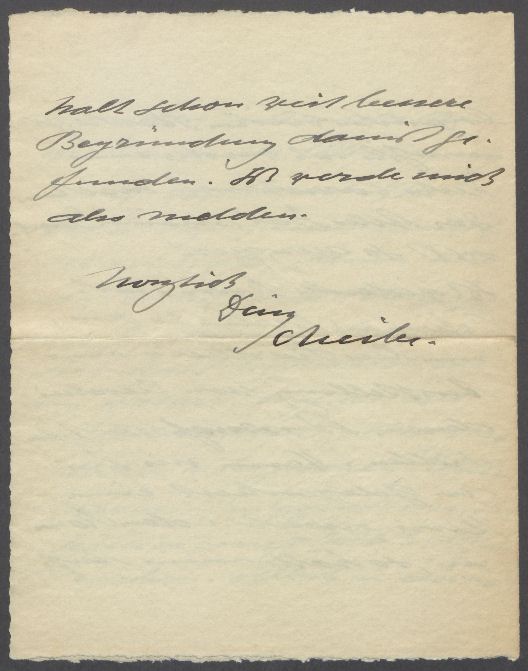 halt schon viel bessere
Begründung damit ge-
funden! Ich werde mich
also melden.
Herzlich
Dein